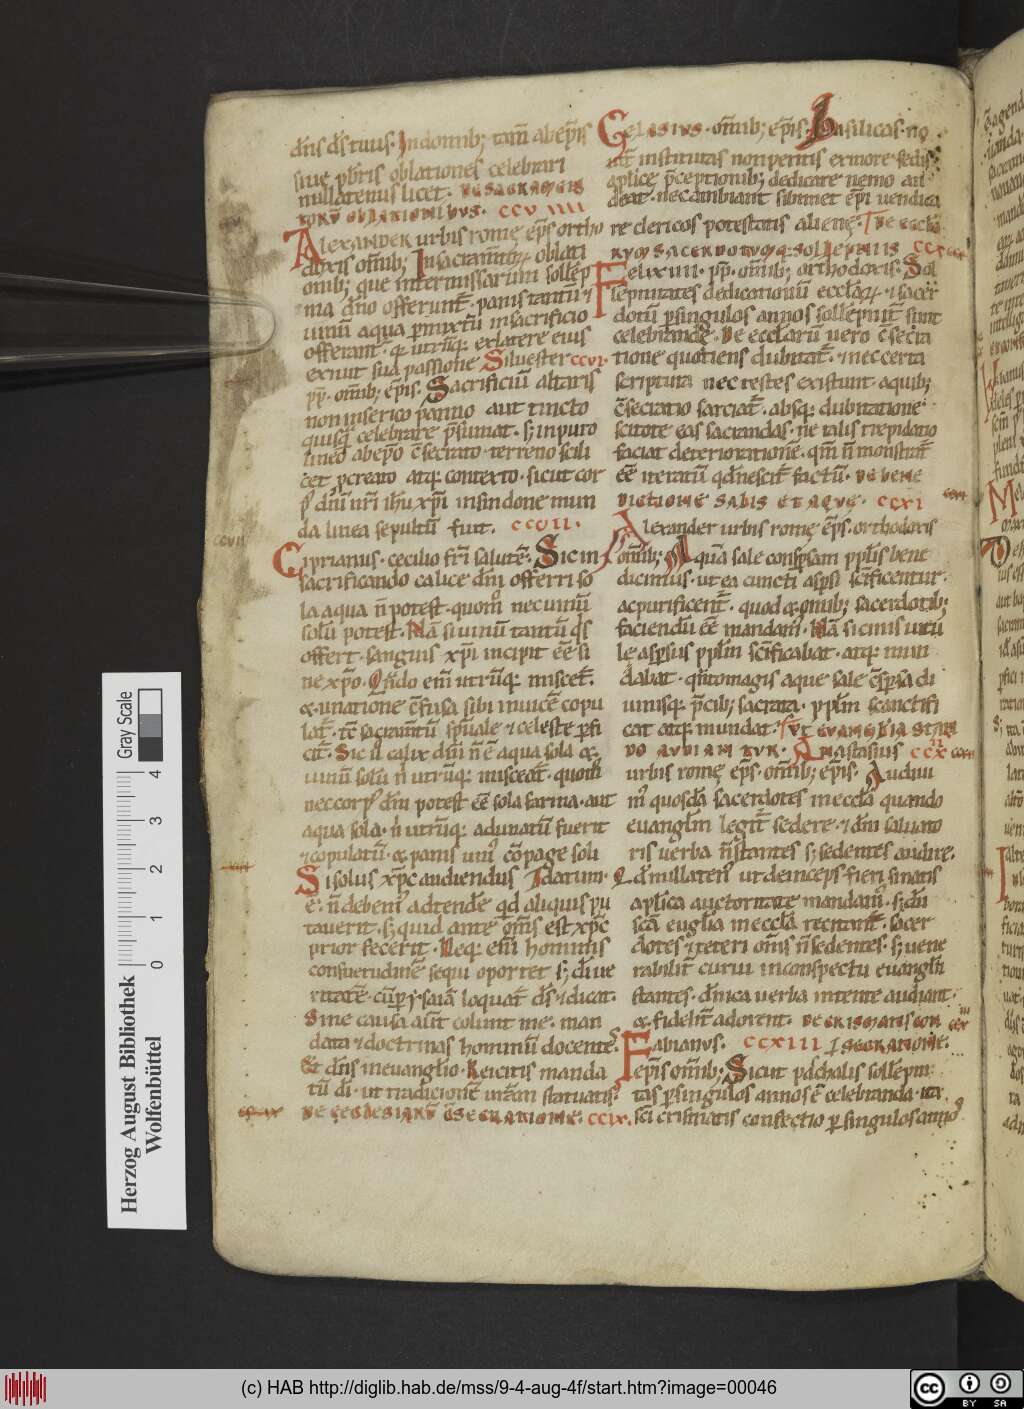 dn̄s ds̄ tuus. In domib; tam̄ ab ep̄is
siue pb̄ris oblationes celebrari
nullatenus licet. DE SACRAMEN
TORV̄ OBLATIONIBUS. CCV IIII
ALEXANDER urbis romę ep̄s ortho
doxis om̄ib; In sacram̄tor̄ oblati
onib; que inter missarum sollēp
nia dn̄o offerunt̄. panis tantū ⁊
uinū aqua p̄mixtū in sacrificio
offerant̄. qr̄ utrūq; ex latere eius
exiuit sua passione Siluester CCVI.
pp̄. om̄ib; ep̄is. Sacrificiū altaris
non in serico panno aut tincto
quisq̄ celebrare p̄sumat. s; in puro
lineo ab ep̄o c̄secrato terreno scili
cet p̄creato atq; contexto. sicut cor
p̄ dn̄i nr̄i ih̄u xp̄i in sindone mun
da linea sepultū fuit. CCVII.
Ciprianus. cecilio fr̄i salutē. Sic in
sacrificando calice dn̄i offerri so
la aqua n̄ potest. quom̊ nec uinū
solū potest. Nā si uinū tantū q̄s
offert. sanguis xp̄i incipit ēe si
ne xp̄o. Qn̄do em̄ utrūq; miscet̄.
⁊ unatione c̄fusa sibi inuicē copu
lat̄. tc̄ sacram̄tū sp̄uale ⁊ celeste p̄fi
cit̄. Sic ū calix dn̄i n̄ ē aqua sola ⁊
uinū solū n̄ utrūq; misceat̄. quom̊
nec corp̄ dn̄i potest ēe sola farina. aut
aqua sola. n̄ utrūq; adunatū fuerit
⁊ copulatū. ⁊ panis uni᷒ cōpage soli
Si solus xp̄c audiendus Idatum.
ē. n̄ debem᷒ adtendē qd̄ aliquis pu
tauerit. s; quid ante om̄s est xp̄c
prior fecerit. Neq; em̄ hominis
consuetudinē sequi oportet s; dī ue
ritatē. cū p̄ ysaiā loquat̄ ds̄ ⁊ dicat.
Sine causa aūt colunt me. man
data ⁊ doctrinas hominū docentes.
Et dn̄s in euanglīo. Reicitis manda
tū dī. ut traditionē ur̄am statuatis.
DE ECCLESIARV̄ C̄SECRATIONE. CCIX.
GELASIVS. om̄ib; ep̄is. Basilicas no
uit̄ institutas non petitis ex more sedis
ap̄lice p̄ceptionib; dedicare nemo au
deat. nec ambiant sibimet ep̄i uendica
re clericos potestatis alienę. DE ECCLA
RVM SACERDOTVMQ; SOLLEPNIIS CCX
Felix IIII. pp̄. om̄ib; orthodoxis. Sol
lepnitates dedicationū eccl̄ar̄. ⁊ sacer
dotū p̄ singulos annos sollēpnit̄ sunt
celebrande. De eccl̄arū uero c̄secra
tione quotiens dubitat̄. ⁊ nec certa
scriptura nec testes existunt a quib;
c̄secratio sarciat̄. absq; dubitatione
scitote eas sacrandas. ne talis trepidatio
faciat deteriorationē. qm̄ n̄ monstrat̄
ēē iteratū qd̄ nescit̄ factū. DE BENE
DICTIONE SALIS ET AQVE. CCXI
Alexander urbis romę ep̄s. orthodoxis
om̄ib; Aquā sale consp̄sam pp̄lis bene
dicimus. ut ea cuncti asp̄si sc̄ificentur.
ac purificent̄. quod ⁊ omib; sacerdotib;
faciendū ēe mandam᷒. Nā si cinis uitu
le asp̄sus pp̄lm sc̄ificabat. atq; mun
dabat. qn̄to magis aque sale c̄sp̄sa di
uinisq; p̄cib; sacrata. pplm̄ sc̄antifi
cat atq; mundat. VT EVANGELIA STAN
DO AVDIANTVR. Anastasius CCX
urbis romę ep̄s. om̄ib; ep̄is. Audiui
m᷒ quosdā sacerdotes in eccl̄a quando
euanglm̄ legit̄ sedere. ⁊ dn̄i saluato
ris uerba n̄ stantes s; sedentes audire.
Qd̄ nullaten᷒ ut deinceps fieri sinatis
aplīca auctoritate mandam᷒. s; dū
scā euglīa in eccl̄a recitant̄. sacer
dotes ⁊ ceteri om̄s n̄ sedentes. s; uene
rabilit̄ curui in conspectu euanglīi
stantes. dn̄ica uerba intente audiant.
⁊ fidelit̄ adorent. DE CRISMATIS CON
Fabianus. CCXIII SECRATIONE.
ep̄is om̄ib; Sicut paschalis sollēpni
tas p̄ singulos annos ē celebranda. ita
sc̄i crismatis confectio p̄ singulos annos
Herzog August Bibliothek
Wolfenbüttel
0 1 2 3 4
Gray Scale
(c) HAB http://diglib.hab.de/mss/9-4-aug-4f/start.htm?image=00046
cc BY SA